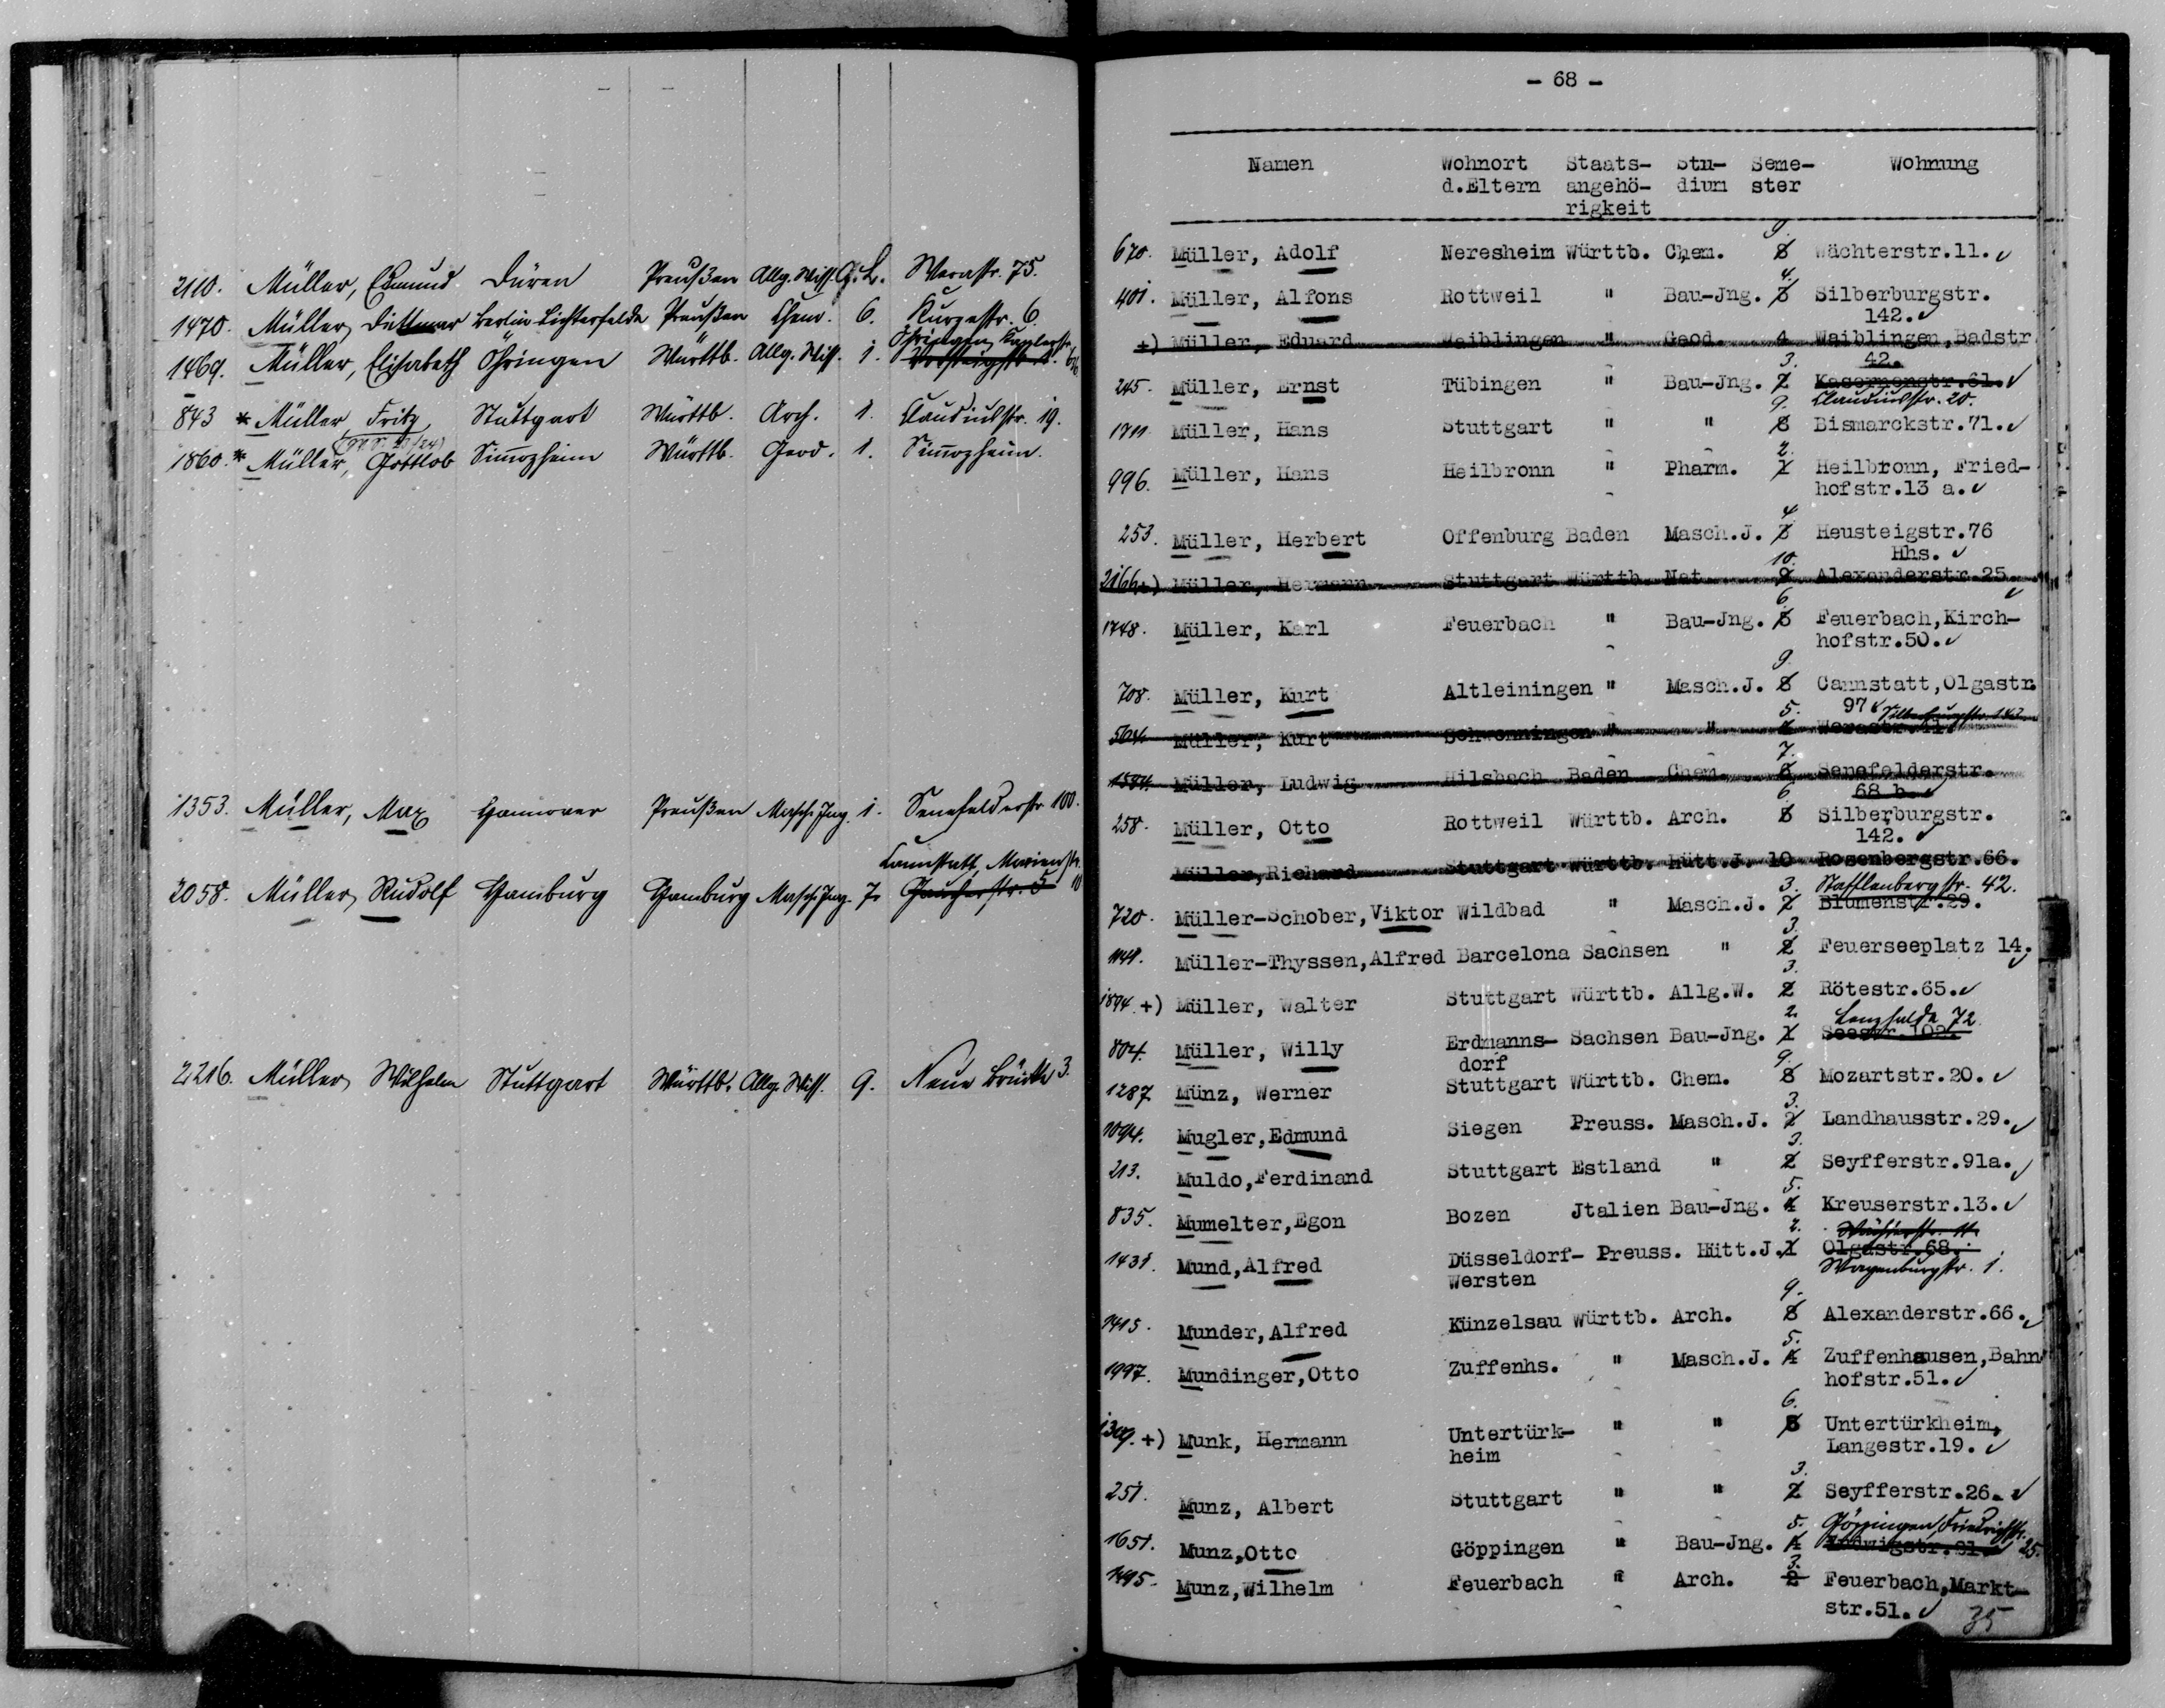 2110. Müller, Edmund Düren Preußen Allg. Wiss. G. L. Werastr. 75.
1470. Müller, Dittmar Berlin-Lichterfelde Preußen Chem. 6. Kurzestr. 6.
Öhringen,
1469. Müller, Elisabeth Öhringen Württb. Allg. Wiss. 1.
843 * Müller, Fritz Stuttgart Württb. Arch. 1. Claudiusstr. 19.
1860. * Müller, Gottlob Simozheim Württb. Geod. 1. Simozheim.
1353. Müller, Max Hannover Preußen Masch. Ing. 1. Senefelderstr. 100.
Cannstatt, Marienstr.
2058. Müller, Rudolf Hamburg Hamburg Masch. Ing. 7. 10
2216. Müller, Wilhelm Stuttgart Württb. Allg. Wiss. 9. Neue Brücke 3.
- 68 -
Namen Wohnort Staats- Stu- Seme- Wohnung
d.Eltern angehö- dium ster
rigkeit
9.
670. Müller, Adolf Neresheim Württb. Chem. 8 Wächterstr.11.
4.
401. Müller, Alfons Rottweil " Bau-Jng. 3 Silberburgstr.
142.
+) Müller, Eduard Waiblingen " Geod. 4 Waiblingen, Badstr
3. 42.
245. Müller, Ernst Tübingen " Bau-Jng. 2 Kasernenstr.61.
9. Claudiusstr. 20.
1711. Müller, Hans Stuttgart " " 8 Bismarckstr.71.
2.
996. Müller, Hans Heilbronn " Pharm. 1 Heilbronn, Fried-
hofstr.13 a.
4
253. Müller, Herbert Offenburg Baden Masch.J. 3 Heusteigstr.76
10. Hhs.
2166 +) Müller, Hermann Stuttgart Württb. Nat 9 Alexanderstr.25.
6.
1748. Müller, Karl Feuerbach " Bau-Jng. 5 Feuerbach,Kirch-
hofstr.50.
9.
708. Müller, Kurt Altleiningen " Masch.J. 8 Cannstatt,Olgastr.
5. 97 Silberburgstr. 143
564. Müller, Kurt Schwenningen " " 4 Werastr.41.
7.
1594. Müller, Ludwig Hilsbach Baden Chem. 6 Senefelderstr.
6. 68 b.
258. Müller, Otto Rottweil Württb. Arch. 5 Silberburgstr.
142.
Müller,Richard Stuttgart Württb. Hütt.J. 10 Rosenbergstr.66.
3. Stafflenbergstr. 42.
720. Müller-Schober,Viktor Wildbad " Masch.J. 2 Blumenstr.29.
3.
1148. Müller-Thyssen,Alfred Barcelona Sachsen " 2 Feuerseeplatz 14.
3.
1894. +) Müller, Walter Stuttgart Württb. Allg.W. 2 Rötestr.65.
2. Lenzhalde 72
804. Müller, Willy Erdmanns- Sachsen Bau-Jng. 1 Seestr.102.
dorf 9.
1287 Münz, Werner Stuttgart Württb. Chem. 8 Mozartstr.20.
3.
1094. Mugler,Edmund Siegen Preuss. Masch.J. 2 Landhausstr.29.
3.
213. Muldo,Ferdinand Stuttgart Estland " 2 Seyfferstr.91a.
5.
835. Mumelter,Egon Bozen Jtalien Bau-Jng. 4 Kreuserstr.13.
2.
1431. Mund,Alfred Düsseldorf- Preuss. Hütt.J. 1 Olgastr.68.
Wersten Wagenburgstr. 1.
9.
1415. Munder,Alfred Künzelsau Württb. Arch. 8 Alexanderstr.66.
5.
1997. Mundinger,Otto Zuffenhs. " Masch.J. 4 Zuffenhausen,Bahn
hofstr.51.
6.
1309. +) Munk, Hermann Untertürk- " " 5 Untertürkheim,
heim Langestr.19.
3.
251. Munz, Albert Stuttgart " " 2 Seyfferstr.26.
5. Göppingen, Friedrichstr.
1651. Munz,Otto Göppingen " Bau-Jng. 4 25.
3.
1495. Munz,Wilhelm Feuerbach " Arch. 2 Feuerbach,Markt-
str.51.
35